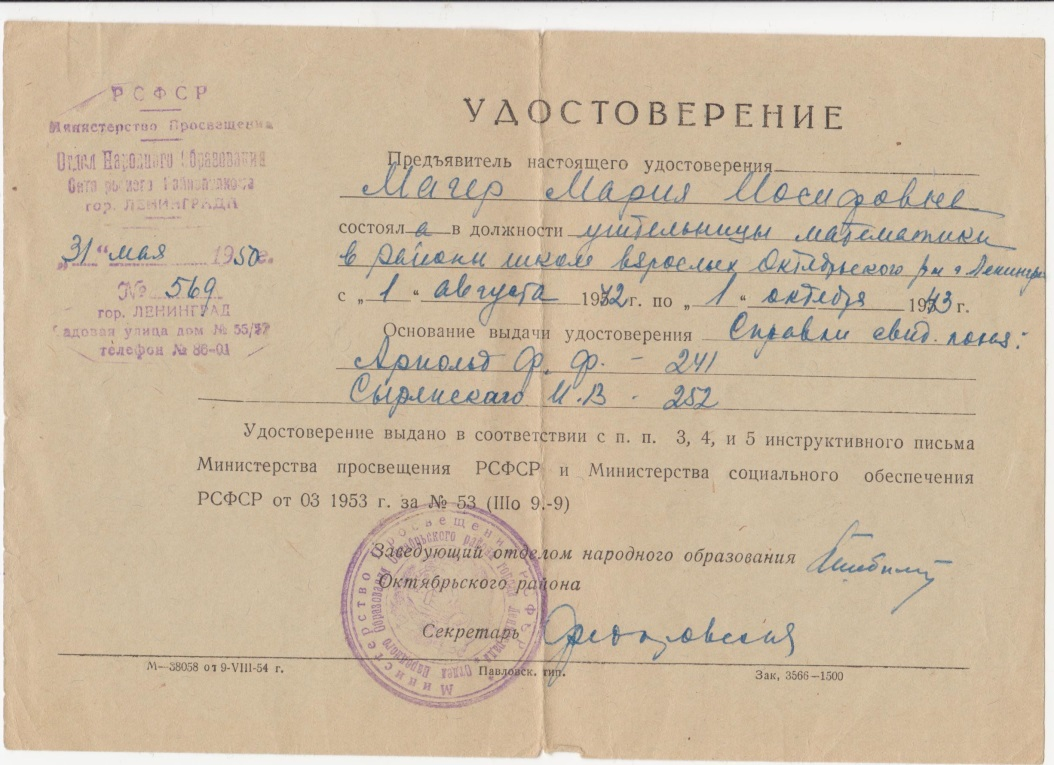 РСФСР
Министерство Просвещения
Отдел Народного Образования
Октябрьского Райисполкома
гор. ЛЕНИНГРАДА
„31" мая 1950г.
№ 569
гор. ЛЕНИНГРАД
адовая улица дом № 55/57
телефон № 86-01
УДОСТОВЕРЕНИЕ
Предъявитель настоящего удостоверения
Магер Мария Иосифовна
состояла в должности учительницы математики
в районн школ взрослых Октябрьского р-на г. Ленингр
с „1" августа 1942г. по „1" октября 1943 г.
Основание выдачи удостоверения Справки свид. показ:
Арнольд Ф. Ф. - 241
Сырянского И.В - 252
Удостоверение выдано в соответствии с п. п. 3, 4, и 5 инструктивного письма
Министерства просвещения РСФСР и Министерства социального обеспечения
РСФСР от 03 1953 г. за № 53 (IIIо 9.-9)
Заведующий отделом народного образования
Октябрьского района
Секретарь
Министерство Просвещения РСФСР
Отдел Народного Образования Октябрьского района города Ленинграда
М—38058 от 9-VIII-54 г. Павловск. тип. Зак, 3566—1500